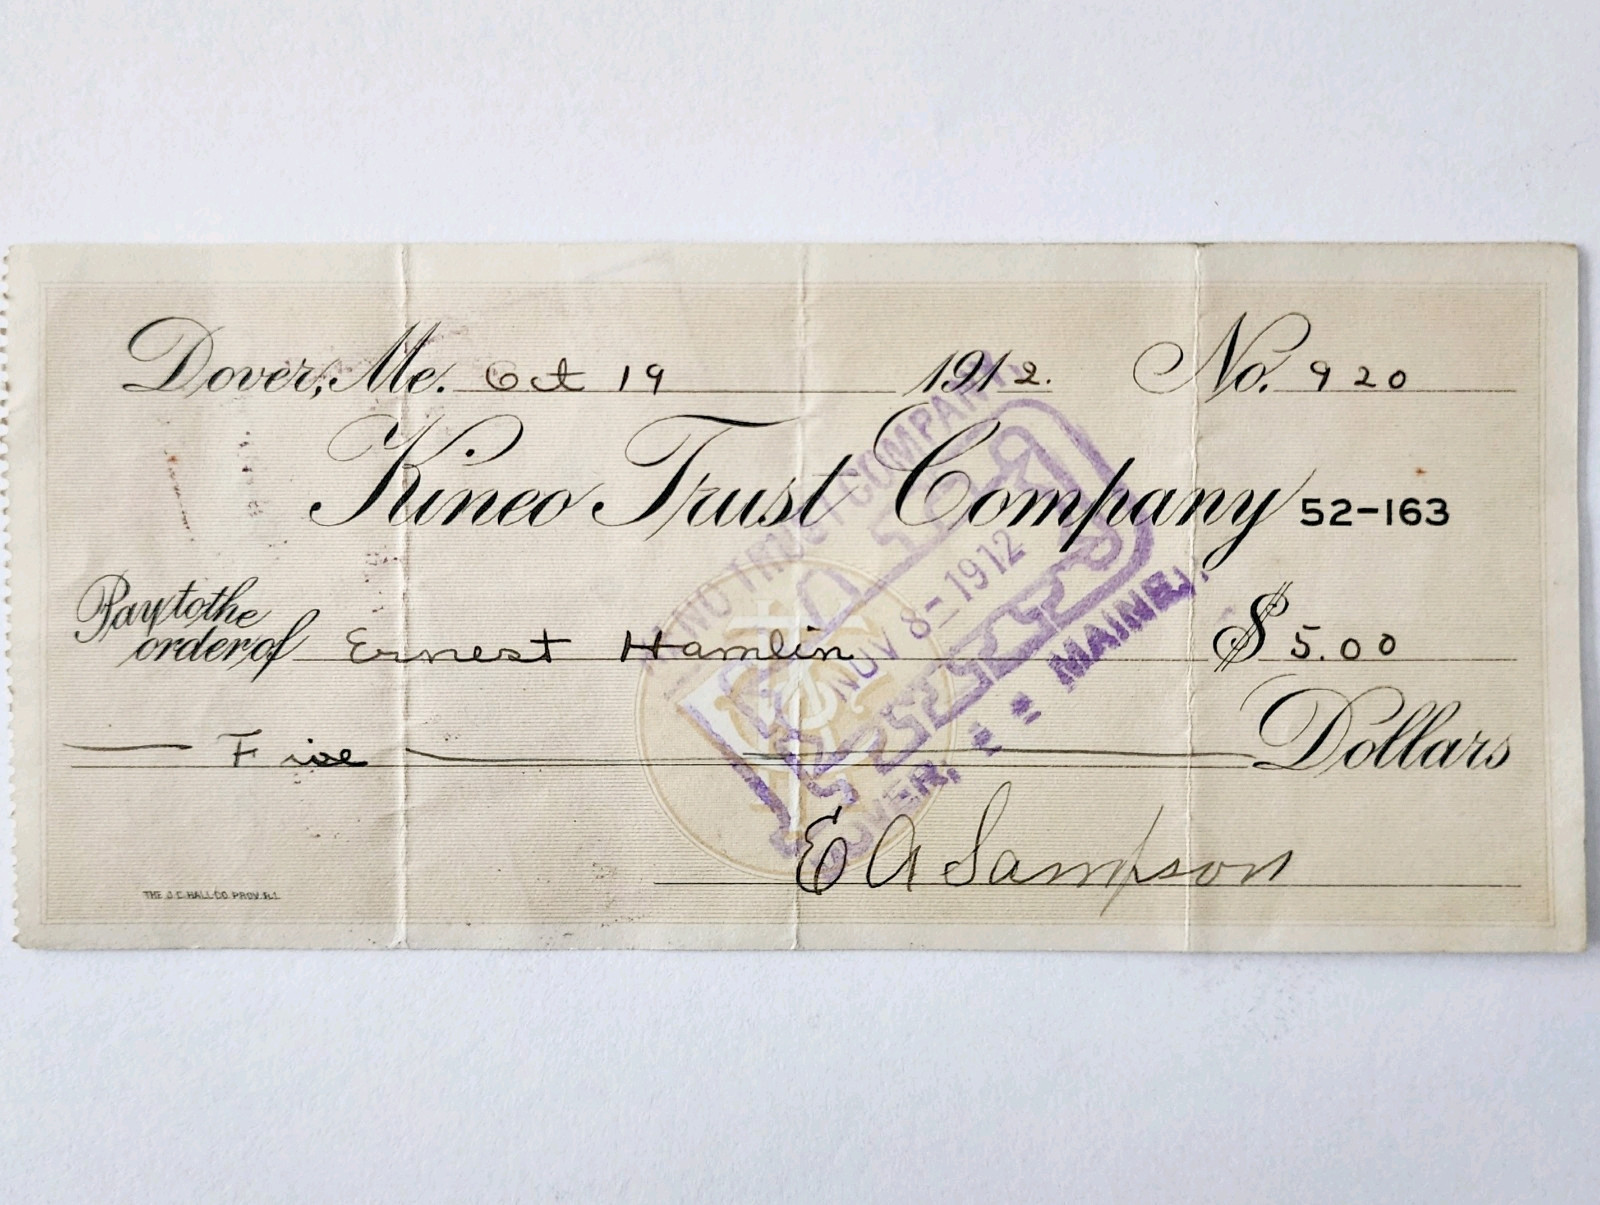 Dover, Me. Oct 19 1912. No. 920
Kineo Trust Company 52-163
Pay to the
order of Ernest Hamlin $5.00
Five Dollars
E A Sampson
THE J.C. HALL CO. PROV. R.I.
KINEO TRUST COMPANY,
PAID
NOV 8-1912
DOVER, MAINE.